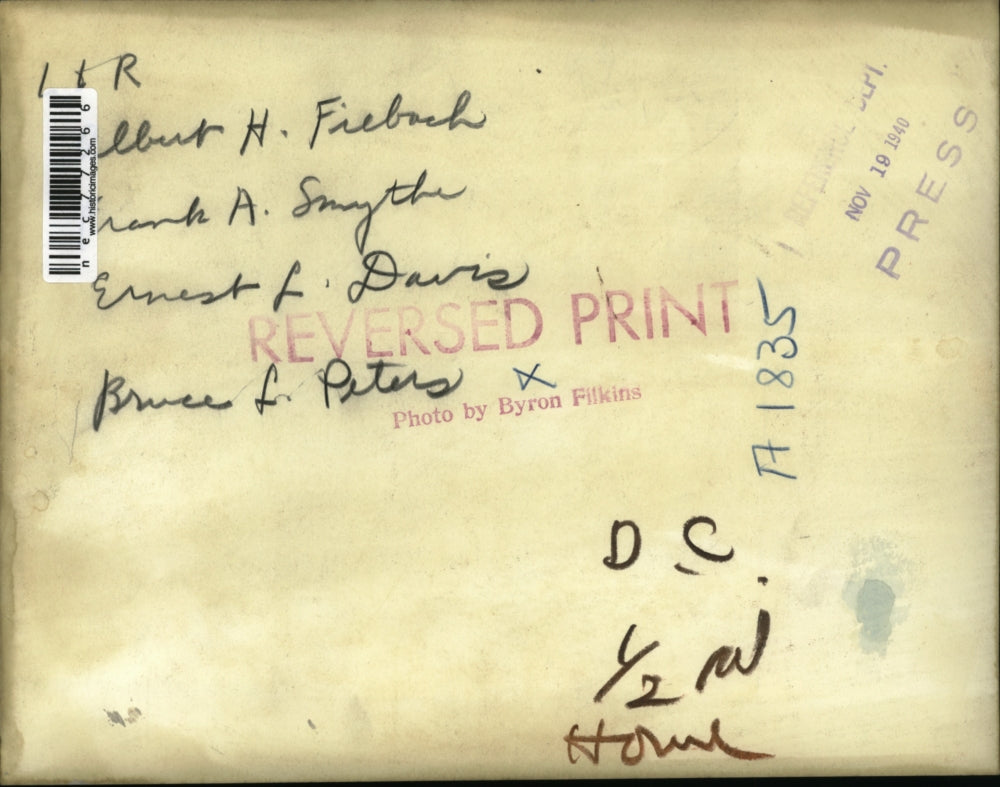 L to R
lbert H. Fiebach
rank A. Smythe
Ernest L. Davis
REVERSED PRINT
Bruce L. Peters X
Photo by Byron Filkins
NOV 19 1940
PRESS
A 1835
D.C.
1/2
Home
nec77266
www.historicimages.com